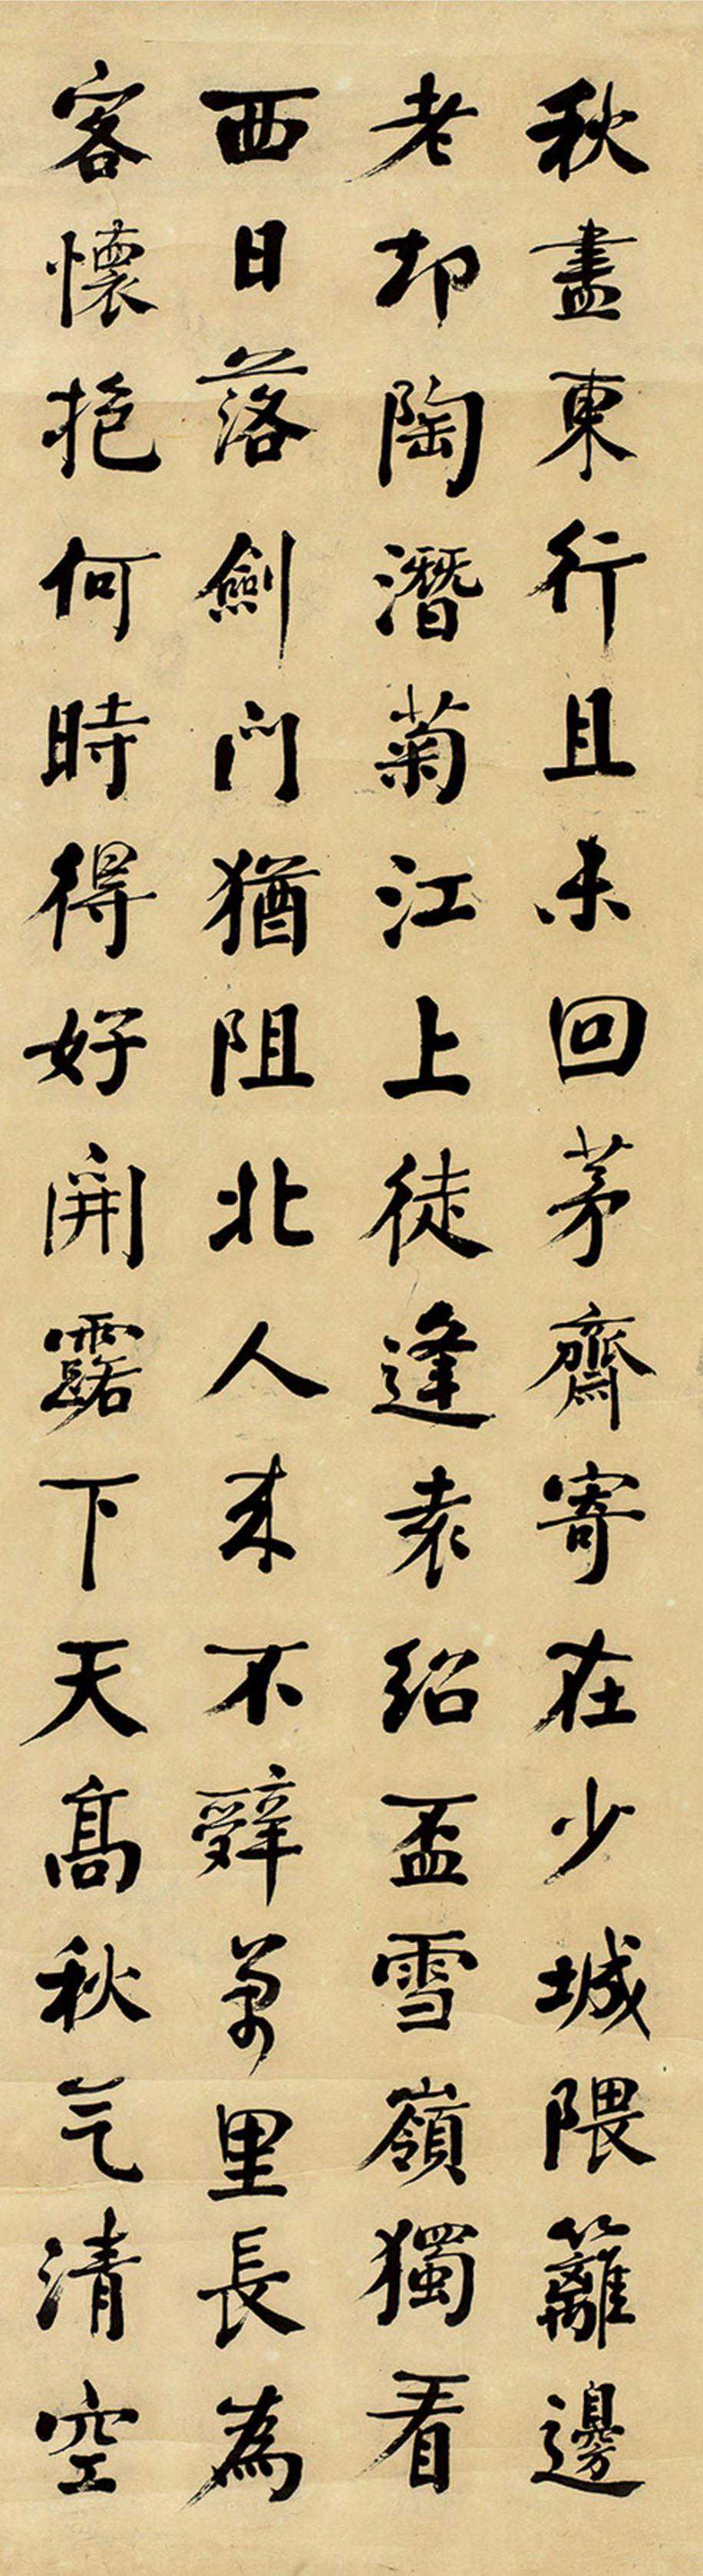 秋盡東行且未回茅齋寄在少城隈籬邊
老却陶潛菊江上徒逢袁紹盃雪嶺獨看
西日落劍門猶阻北人來不辭萬里長為
客懷抱何時得好開露下天高秋气清空